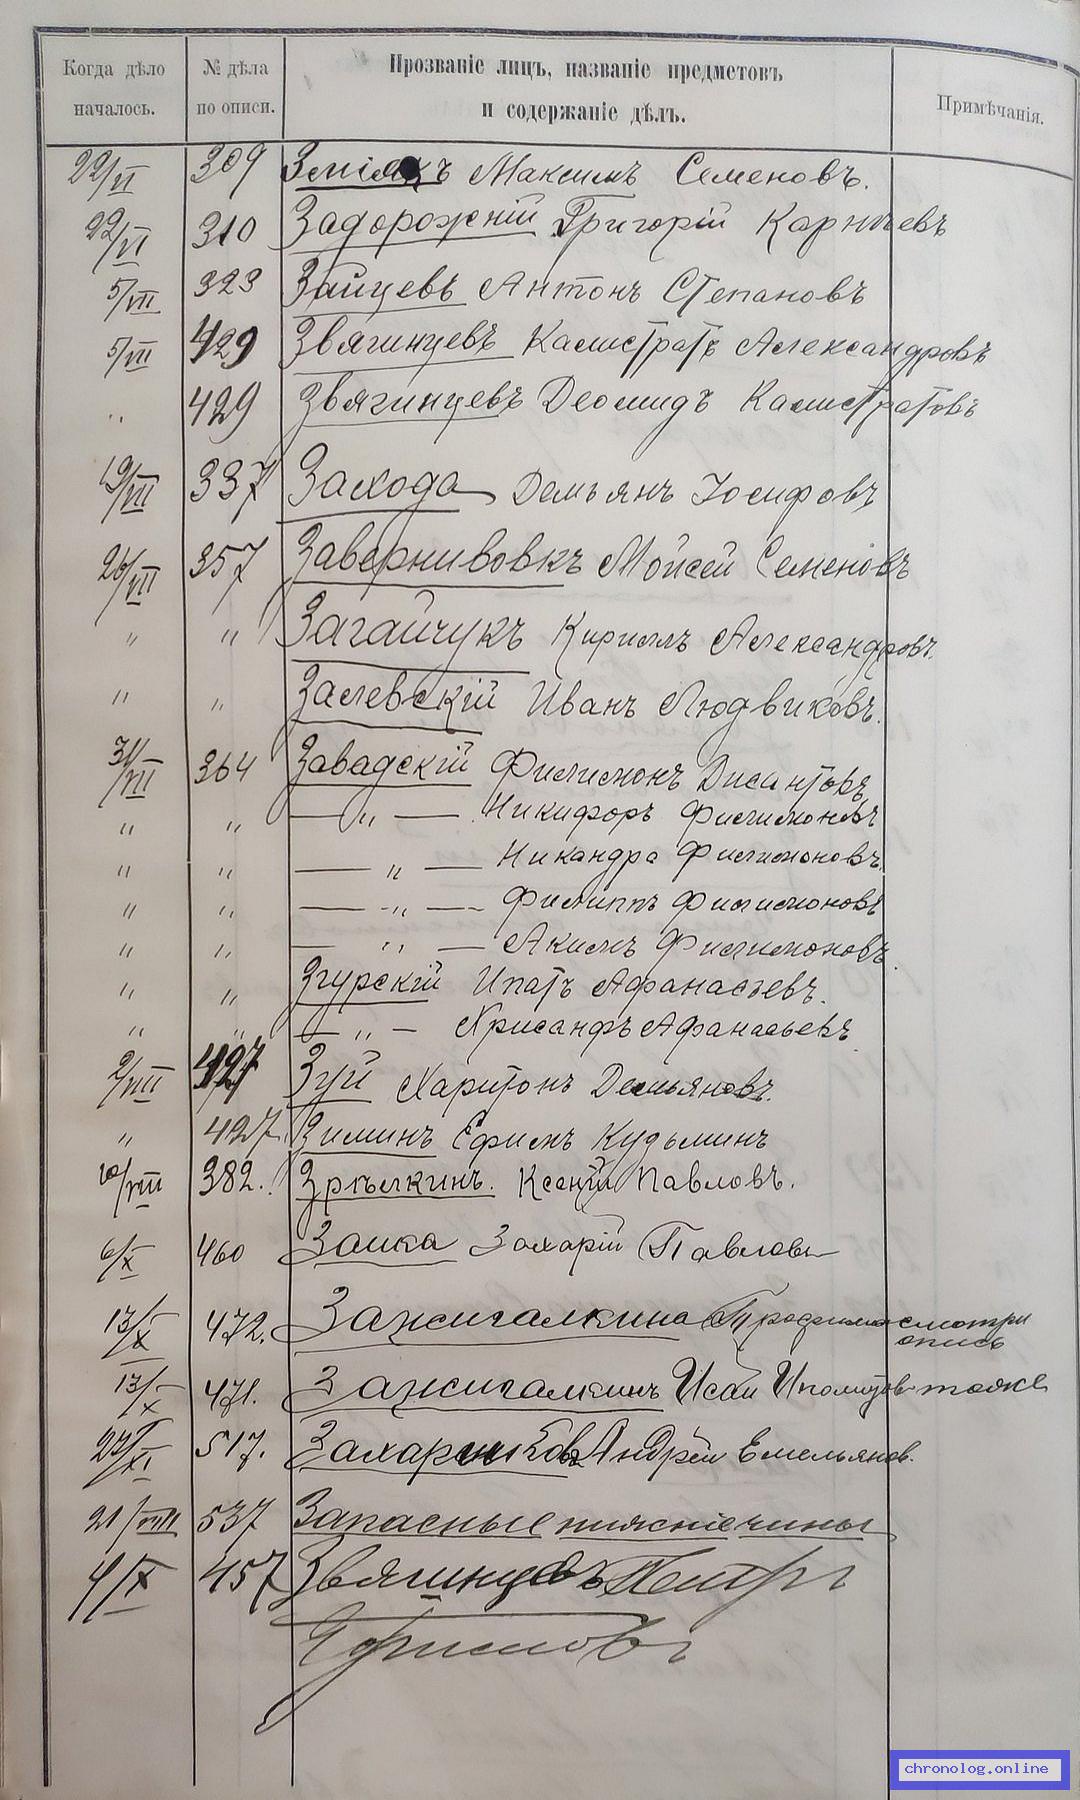 Когда дѣло началось. № дѣла по описи. Прозваніе лицъ, названіе предметовъ и содержаніе дѣлъ. Примѣчанія.
22/VI 309 Зміякъ Максимъ Семеновъ.
22/VI 310 Задорожній Григорій Карнѣевъ
5/VII 323 Зайцевъ Антонъ Степановъ
5/VII 429 Звягинцевъ Калистратъ Александровъ
" 429 Звягинцевъ Деомидъ Калистратовъ
19/VII 337 Захода Демьянъ Іосифовъ
26/VII 357 Завернивовкъ Мойсей Семеновъ
" " Загайчукъ Кириллъ Александровъ.
" " Залевскій Иванъ Людвиковъ.
31/VII 364 Завадскій Филимонъ
" " — " — Никифоръ Филимоновъ
" " — " — Никандра Филимоновъ.
" " — " — Филиппъ Филимоновъ
" " — " — Акимъ Филимоновъ.
" " Згурскій Ипатъ Афанасьевъ.
" " — " — Хрисанфъ Афанасьевъ.
2/VIII 427 Зуй Харитонъ Демьяновъ.
" 427. Зиминъ Ефимъ Кузьминъ
10/VIII 382. Зрѣлкинъ. Ксеній Павловъ.
6/X 460 Заика Захарій Павловъ
13/X 472. Зажигалкина смотри опись
13/X 471. Зажигалкинъ Исай Иполитовъ тоже
22/XI 517. Захарниковъ Андрей Емельянов.
21/VIII 537 Запасные нижніе чины
4/X 457 Звягинцевъ Петръ
Ефимовъ
chronolog.online